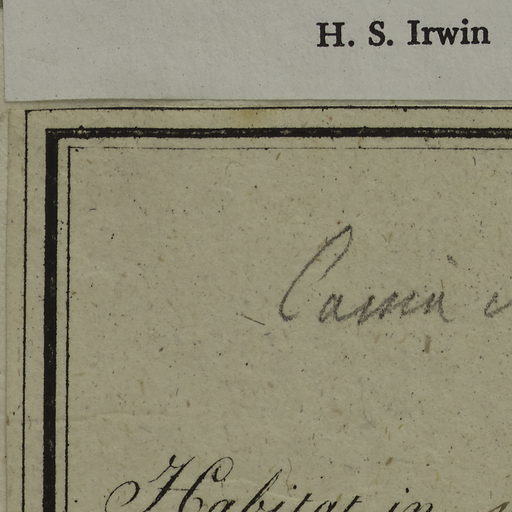 H. S. Irwin
Cassia
Habitat in